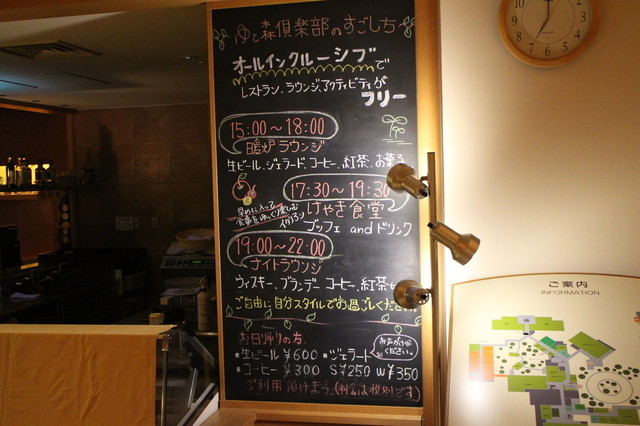 ゆと森倶楽部のすごし方
オールインクルーシブで
レストラン、ラウンジ、アクティビティが
フリー
15:00～18:00
暖炉ラウンジ
生ビール、ジェラード、コーヒー、紅茶、お菓子
17:30～19:30
けやき食堂
ブッフェ andドリンク
19:00～22:00
ナイトラウンジ
ウィスキー、ブランデー コーヒー、紅茶も
ご自由に自分スタイルでお過ごしください
お日帰りの方
お声がけ
ください。
・生ビール ¥600 ・ジェラード
・コーヒー ¥300 S¥250 W¥350
ご利用頂けます。(料金は税別です)
ご案内
INFORMATION